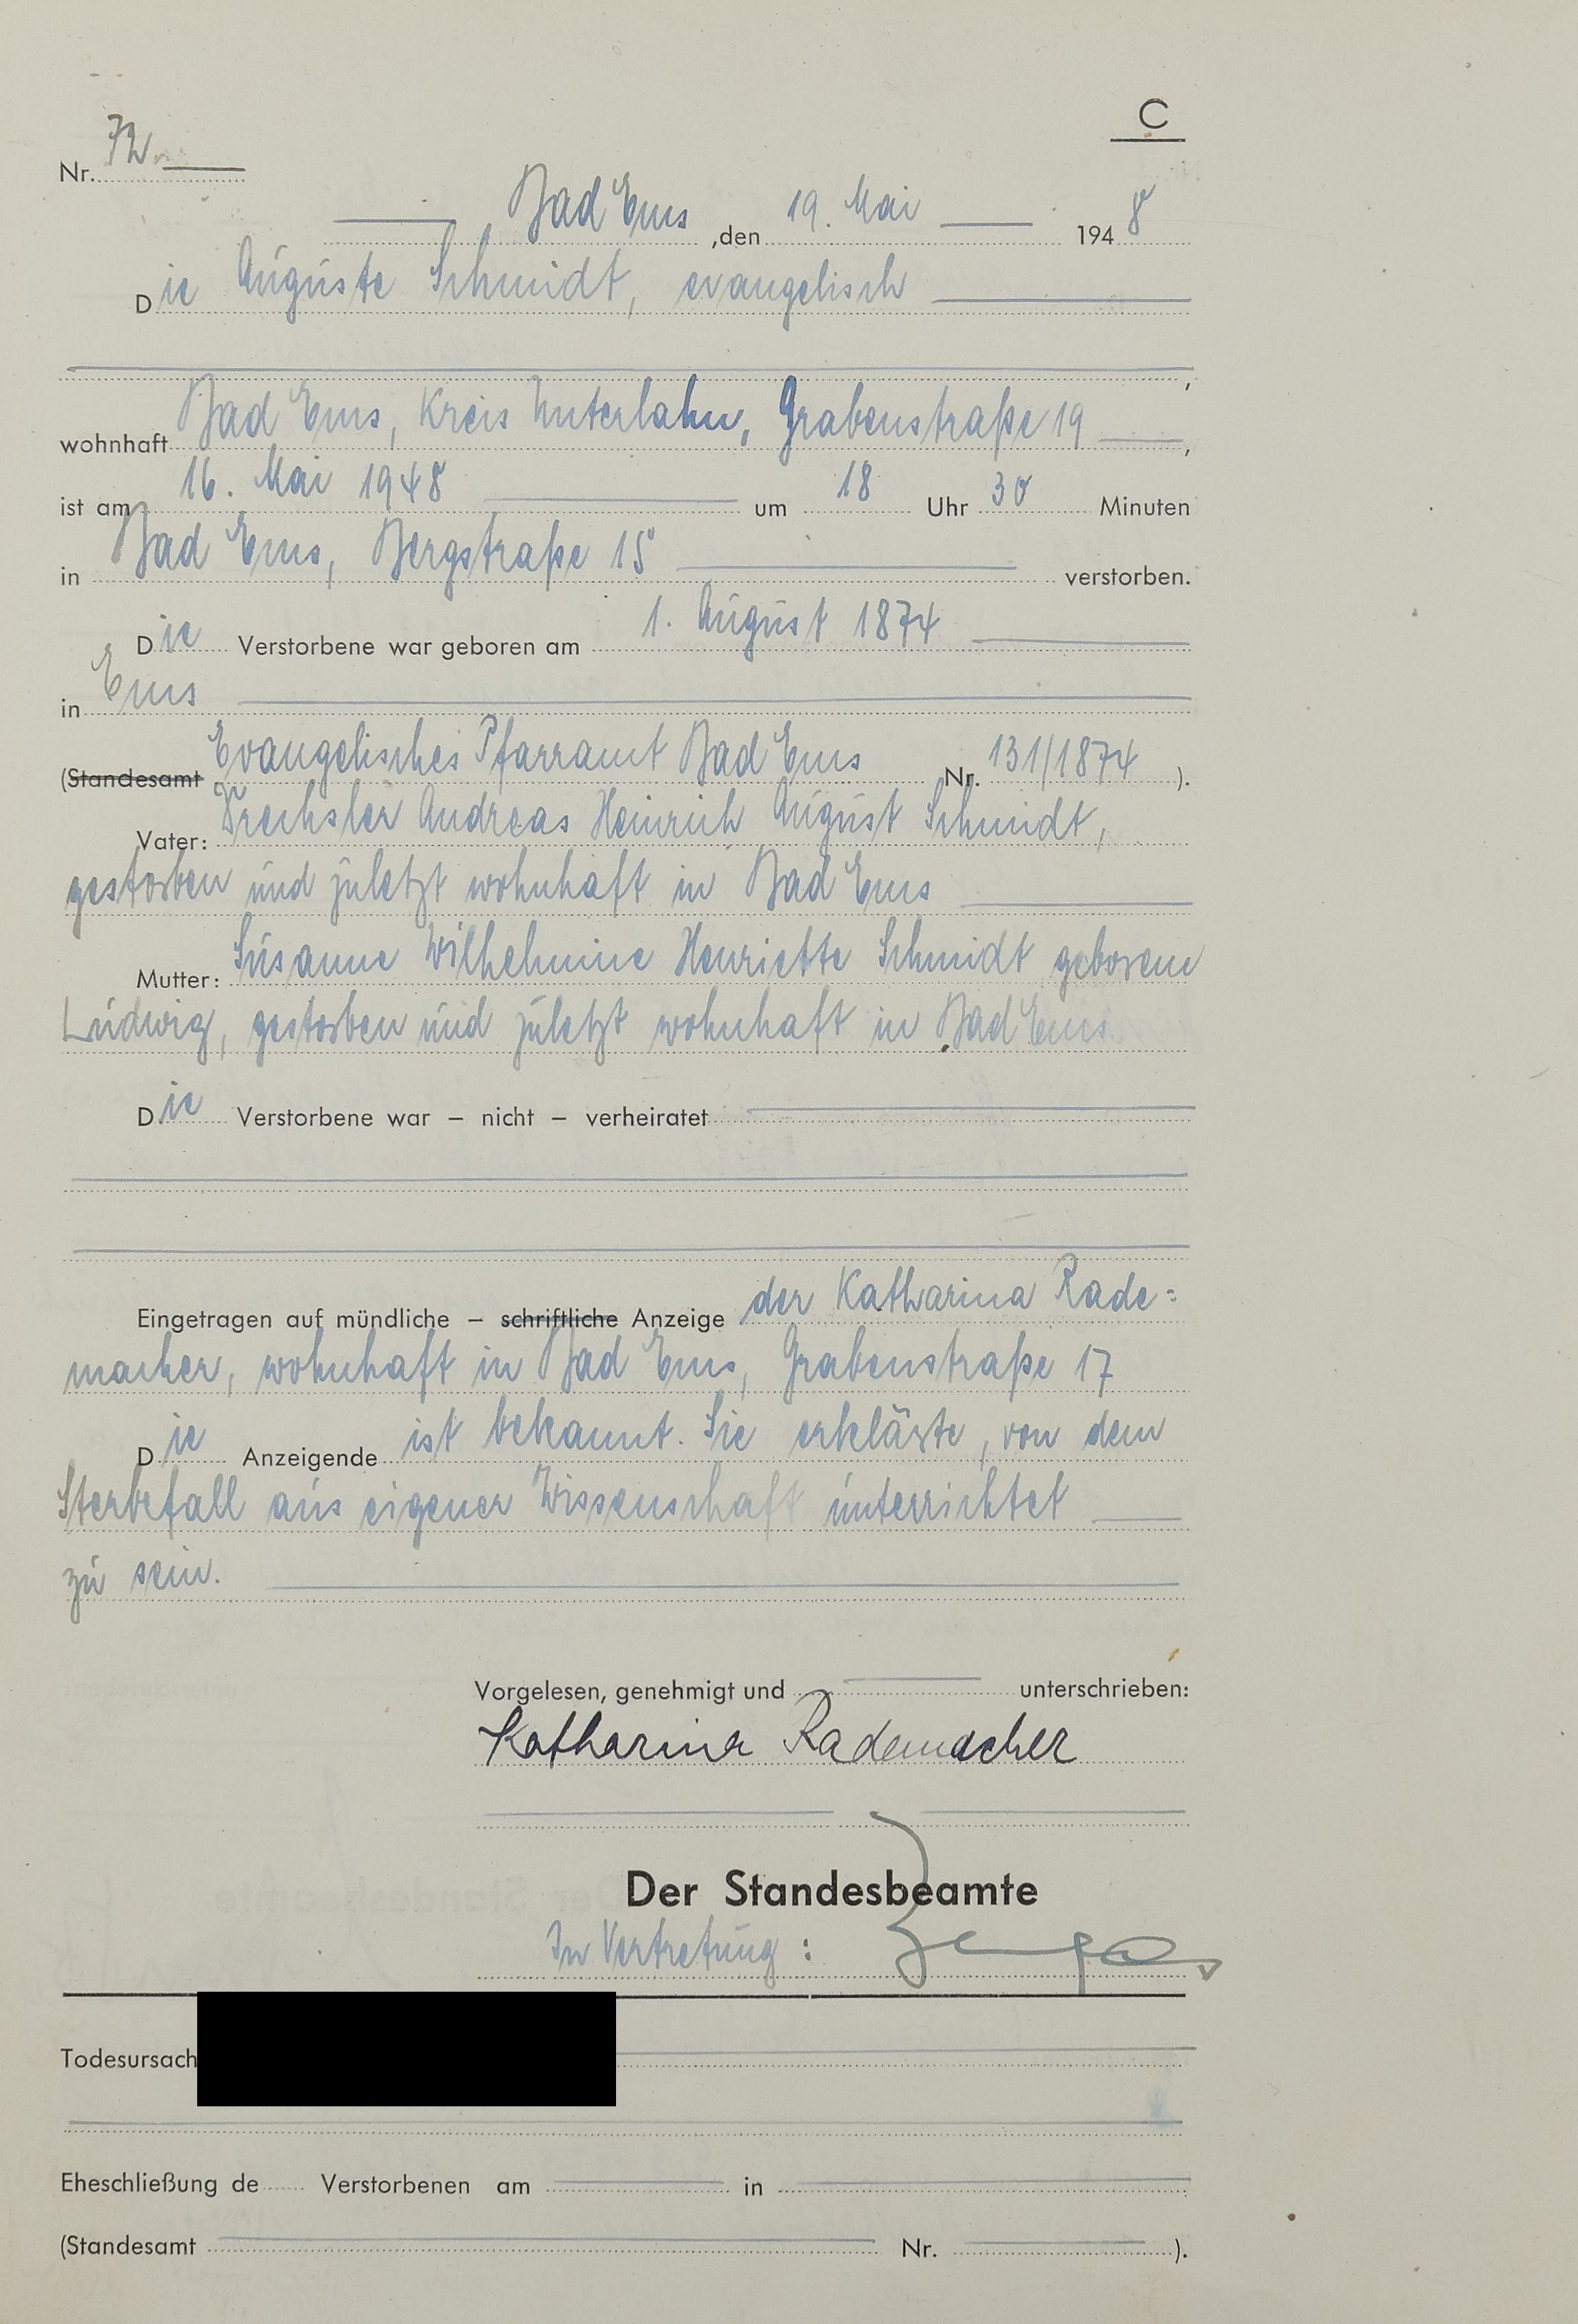 C
Nr. 72
Bad Ems, den 19. Mai 1948
Die Auguste Schmidt, evangelisch
,
wohnhaft Bad Ems, Kreis Unterlahn, Grabenstraße 19,
ist am 16. Mai 1948 um 18 Uhr 30 Minuten
in Bad Ems, Bergstraße 15 verstorben.
Die Verstorbene war geboren am 1. August 1874
in Ems
(Standesamt Evangelisches Pfarramt Bad Ems Nr. 131/1874).
Vater: Drechsler Andreas Heinrich August Schmidt,
gestorben und zuletzt wohnhaft in Bad Ems
Mutter: Susanne Wilhelmine Henriette Schmidt geborene
Ludwig, gestorben und zuletzt wohnhaft in Bad Ems
Die Verstorbene war – nicht – verheiratet
Eingetragen auf mündliche – schriftliche Anzeige der Katharina Rade=
macher, wohnhaft in Bad Ems, Grabenstraße 17
Die Anzeigende ist bekannt. Sie erklärte, von dem
Sterbefall aus eigener Wissenschaft unterrichtet
zu sein.
Vorgelesen, genehmigt und unterschrieben:
Katharina Rademacher
Der Standesbeamte
In Vertretung:
Todesursach
Eheschließung de Verstorbenen am in
(Standesamt Nr. ).